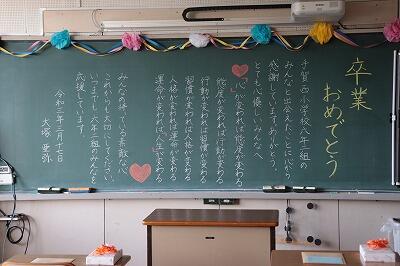 卒業
おめでとう
手賀西小学校六年一組の
みんなと出会えたことに心から
感謝しています。ありがとう。
とても心優しいみんなへ
「心」が変われば態度が変わる
態度が変われば行動が変わる
行動が変われば習慣が変わる
習慣が変われば人格が変わる
人格が変われば運命が変わる
運命が変われば人生が変わる
みんなの持っている素敵な心
これからも大切にしてください。
いつまでも六年一組のみんなを
応援しています。
令和三年三月十七日
大塚 亜弥